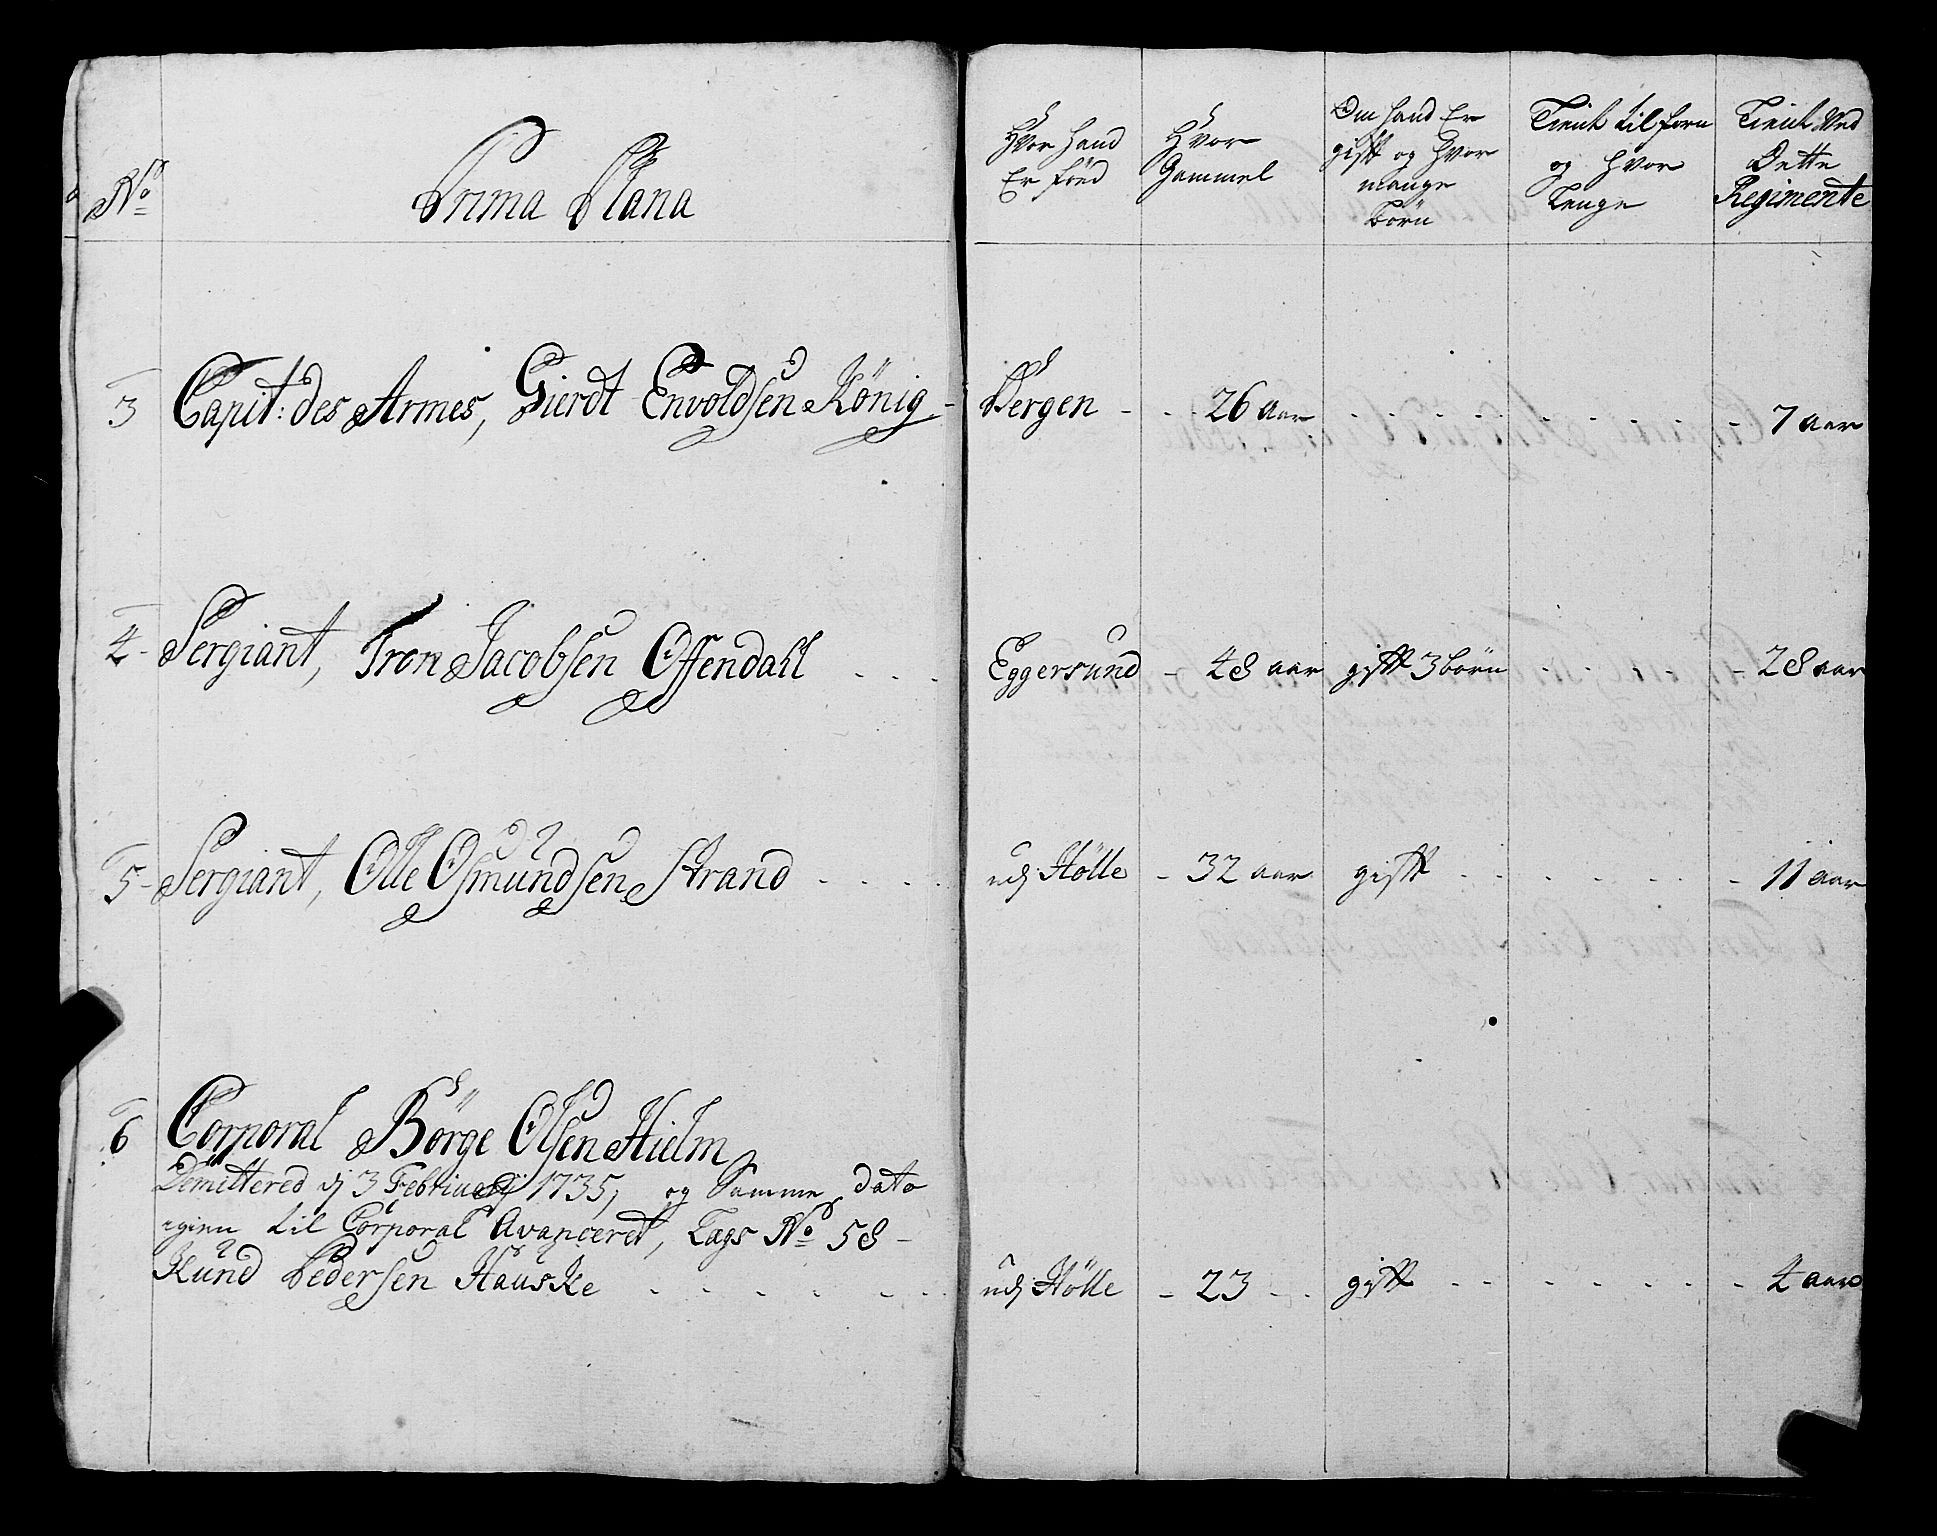 No
Prima Plana
Hvor Hand
Er föed
Hvor
Gammel
Om Hand Er
gift og hvor
mange
Börn
Tient til forn
og hvor
Lenge
Tient Ved
Dette
Regimente
3 Capit: des Armes, Gierdt Envoldsen König - Bergen - - - 26 aar - - - - - - - - 7 aar
4 - Sergiant, Tron Jacobsen Offendall . . . Eggersund - 48 aar gift 3 börn - - - - - 28 aar
5 - Sergiant, Olle Osmundsen Strand . . . . udj Hölle - 32 aar gift - - - - - - - 11 aar
6 Corporal Börge Olsen Hielm
Demittered dj 3 Februarij 1735, og Samme dato
igien til Corporal Avanceret, Lægs No 58 -
Knud Pedersen Hauske . . . . . . . udj Hölle - 23 - . gift - - - - - - - 4 aar